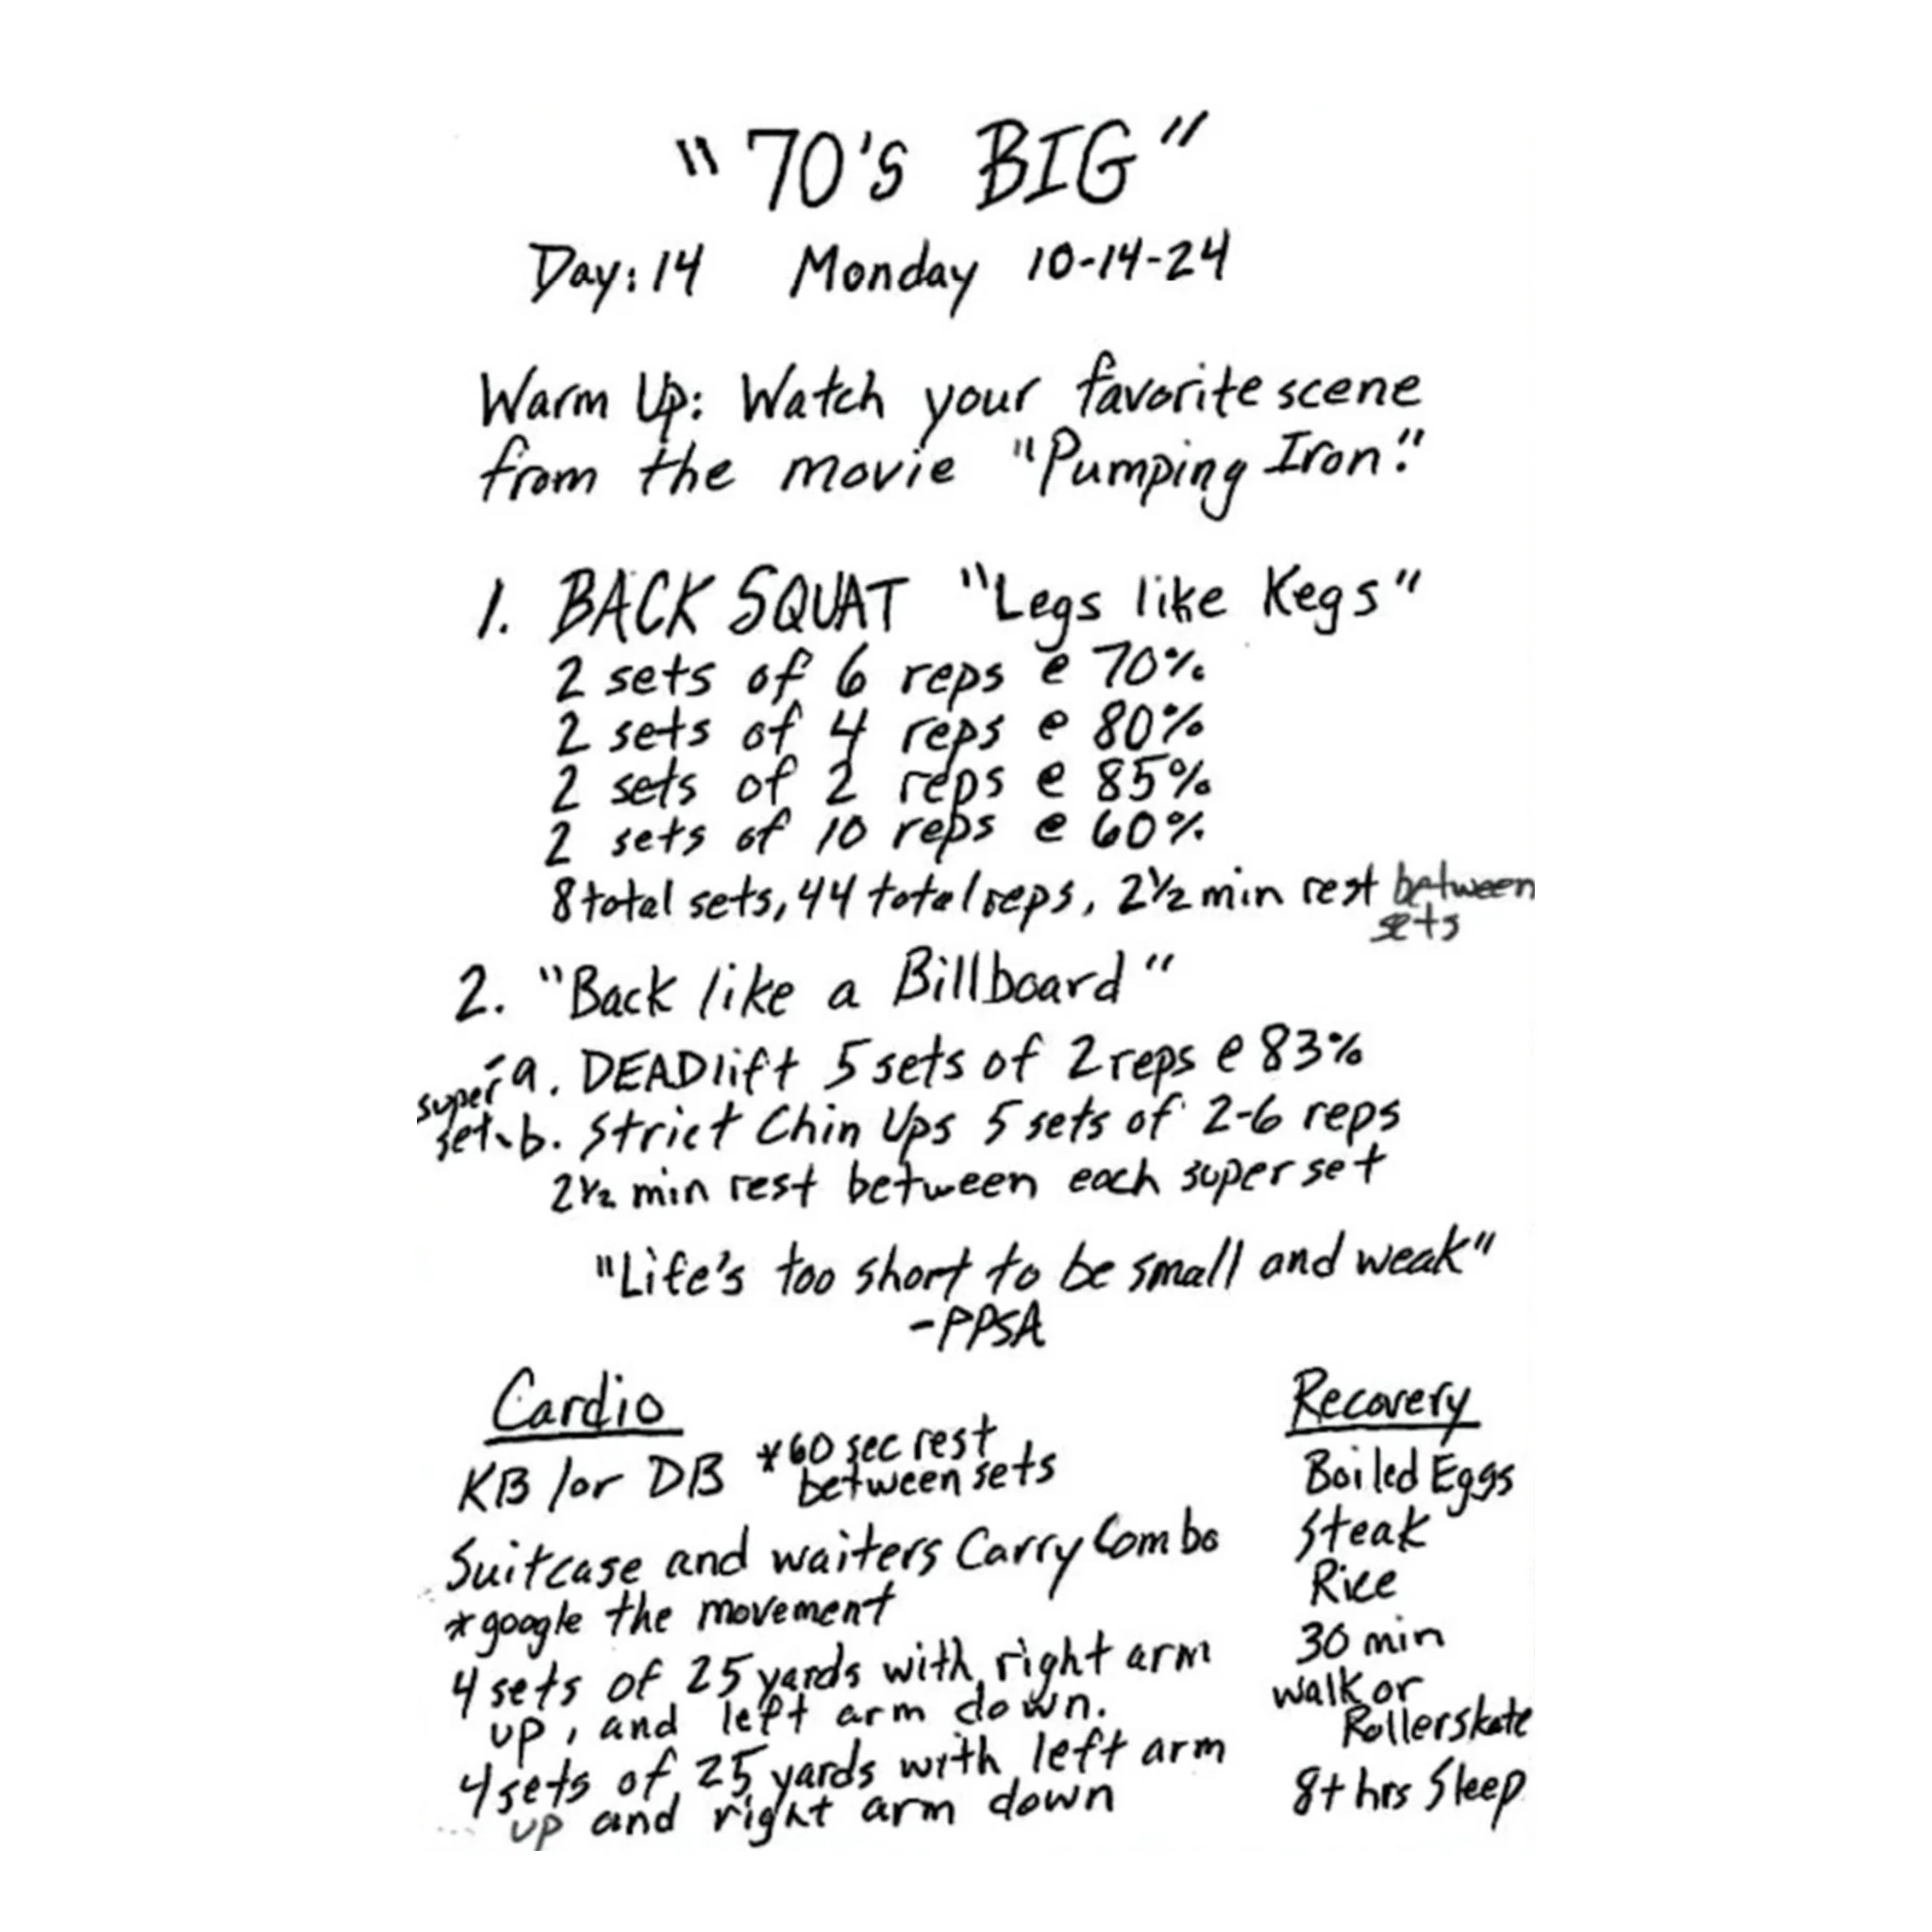 "70's BIG"
Day: 14 Monday 10-14-24
Warm Up: Watch your favorite scene
from the movie "Pumping Iron."
1. BACK SQUAT "Legs like Kegs"
2 sets of 6 reps @ 70%
2 sets of 4 reps @ 80%
2 sets of 2 reps @ 85%
2 sets of 10 reps @ 60%
8 total sets, 44 total reps, 2½ min rest between
sets
2. "Back like a Billboard"
super set
a. DEADlift 5 sets of 2 reps @ 83%
b. Strict Chin Ups 5 sets of 2-6 reps
2½ min rest between each super set
"Life's too short to be small and weak"
-PPSA
Cardio
KB /or DB *60 sec rest
between sets
Suitcase and waiters Carry Combo
*google the movement
4 sets of 25 yards with right arm
up, and left arm down.
4 sets of 25 yards with left arm
up and right arm down
Recovery
Boiled Eggs
Steak
Rice
30 min
walk or
Rollerskate
8+ hrs Sleep